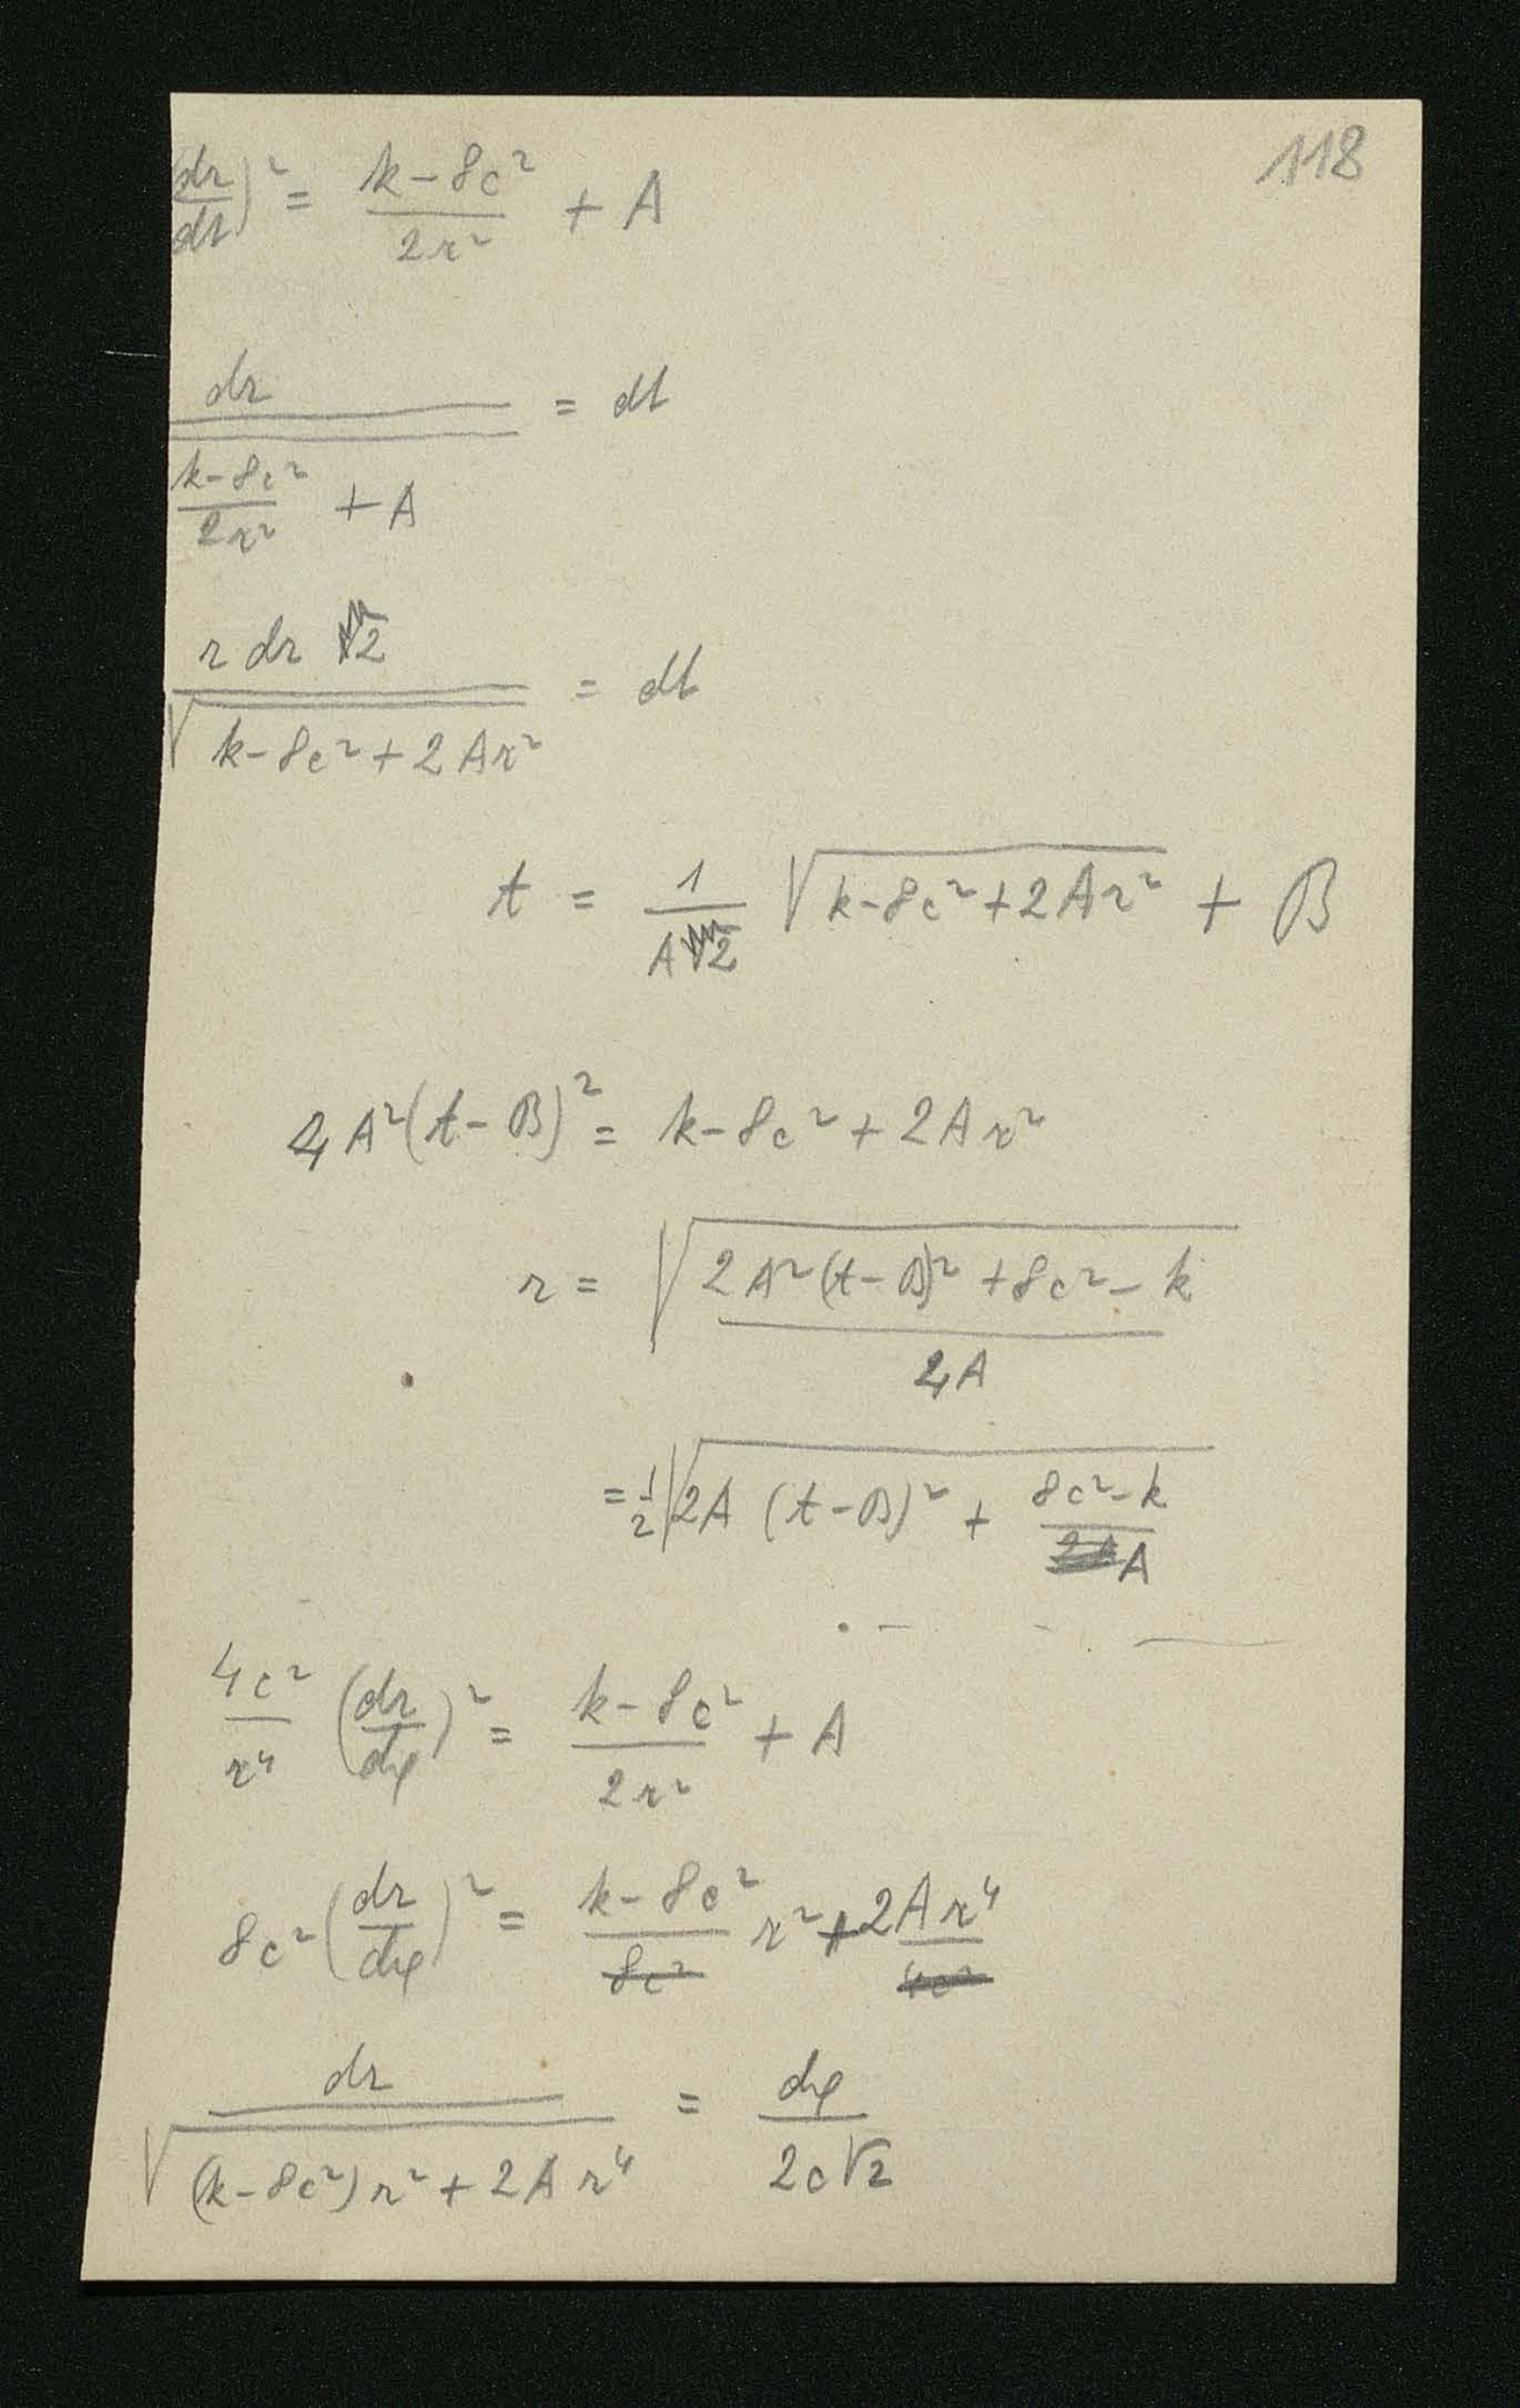 118
(dr/dt)² = (k-8c²)/(2r²) + A
dr / ((k-8c²)/(2r²) + A) = dt
r dr √2 / √(k-8c²+2Ar²) = dt
t = 1/(A√2) √(k-8c²+2Ar²) + B
4A²(t-B)² = k-8c²+2Ar²
r = √((2A²(t-B)²+8c²-k)/(4A))
= 1/2 √(2A (t-B)² + (8c²-k)/A)
4c²/r⁴ (dr/dφ)² = (k-8c²)/(2r²) + A
8c² (dr/dφ)² = (k-8c²)/(8c²) r² + 2Ar⁴/(4c²)
dr / √((k-8c²)r²+2Ar⁴) = dφ/(2c√2)